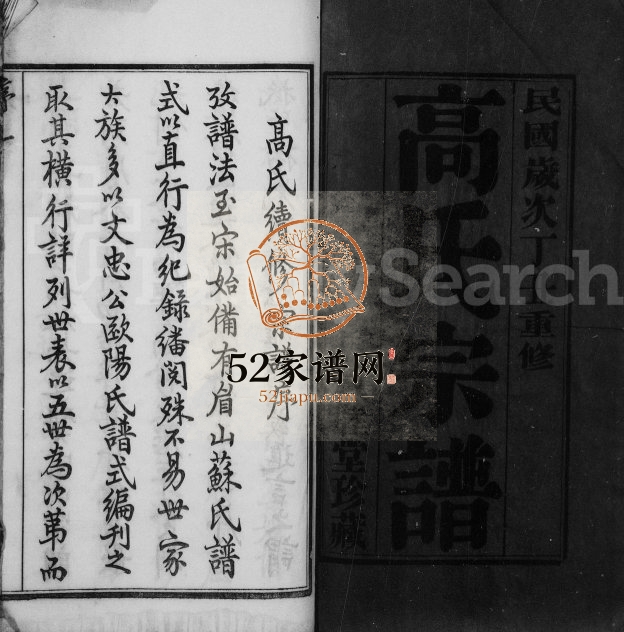 民國歲次丁
重修
高氏宗譜
堂珍藏
高氏續修宗譜序
攷譜法至宋始備有眉山蘇氏譜
式以直行為紀錄繙閱殊不易世家
大族多以文忠公歐陽氏譜式編刊之
取其橫行詳列世表以五世為次第而
52家谱网
52jiapu.com
Search